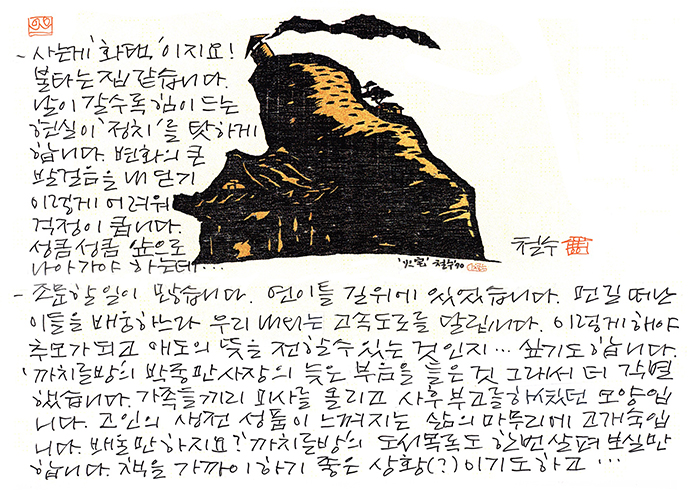 - 사는게 '화택'이지요!
불타는 집 같습니다.
날이 갈수록 힘이 드는
현실이 '정치'를 탓하게
합니다. 변화의 큰
발걸음을 내 딛기
이렇게 어려워
걱정이 큽니다.
성큼성큼 앞으로
나아가야 하는데…
철수
철수 '90
- 조문할 일이 많습니다. 연이틀 길위에 있었습니다. 먼길 떠난
이들을 배웅하느라 우리 내외는 고속도로를 달립니다. 이렇게 해야
추모가 되고 애도의 뜻을 전할 수 있는 것인지… 싶기도 합니다.
'까치글방'의 박종만 사장의 늦은 부음을 들은 것 그래서 더 각별
했습니다. 가족들끼리 미사를 올리고 사후부고를 하셨던 모양입
니다. 고인의 생전 성품이 느껴지는 삶의 마무리에 고개숙입
니다. 배울만 하지요? '까치글방'의 도서목록도 한번 살펴 보실만
합니다. 책을 가까이 하기 좋은 상황(?)이기도 하고…